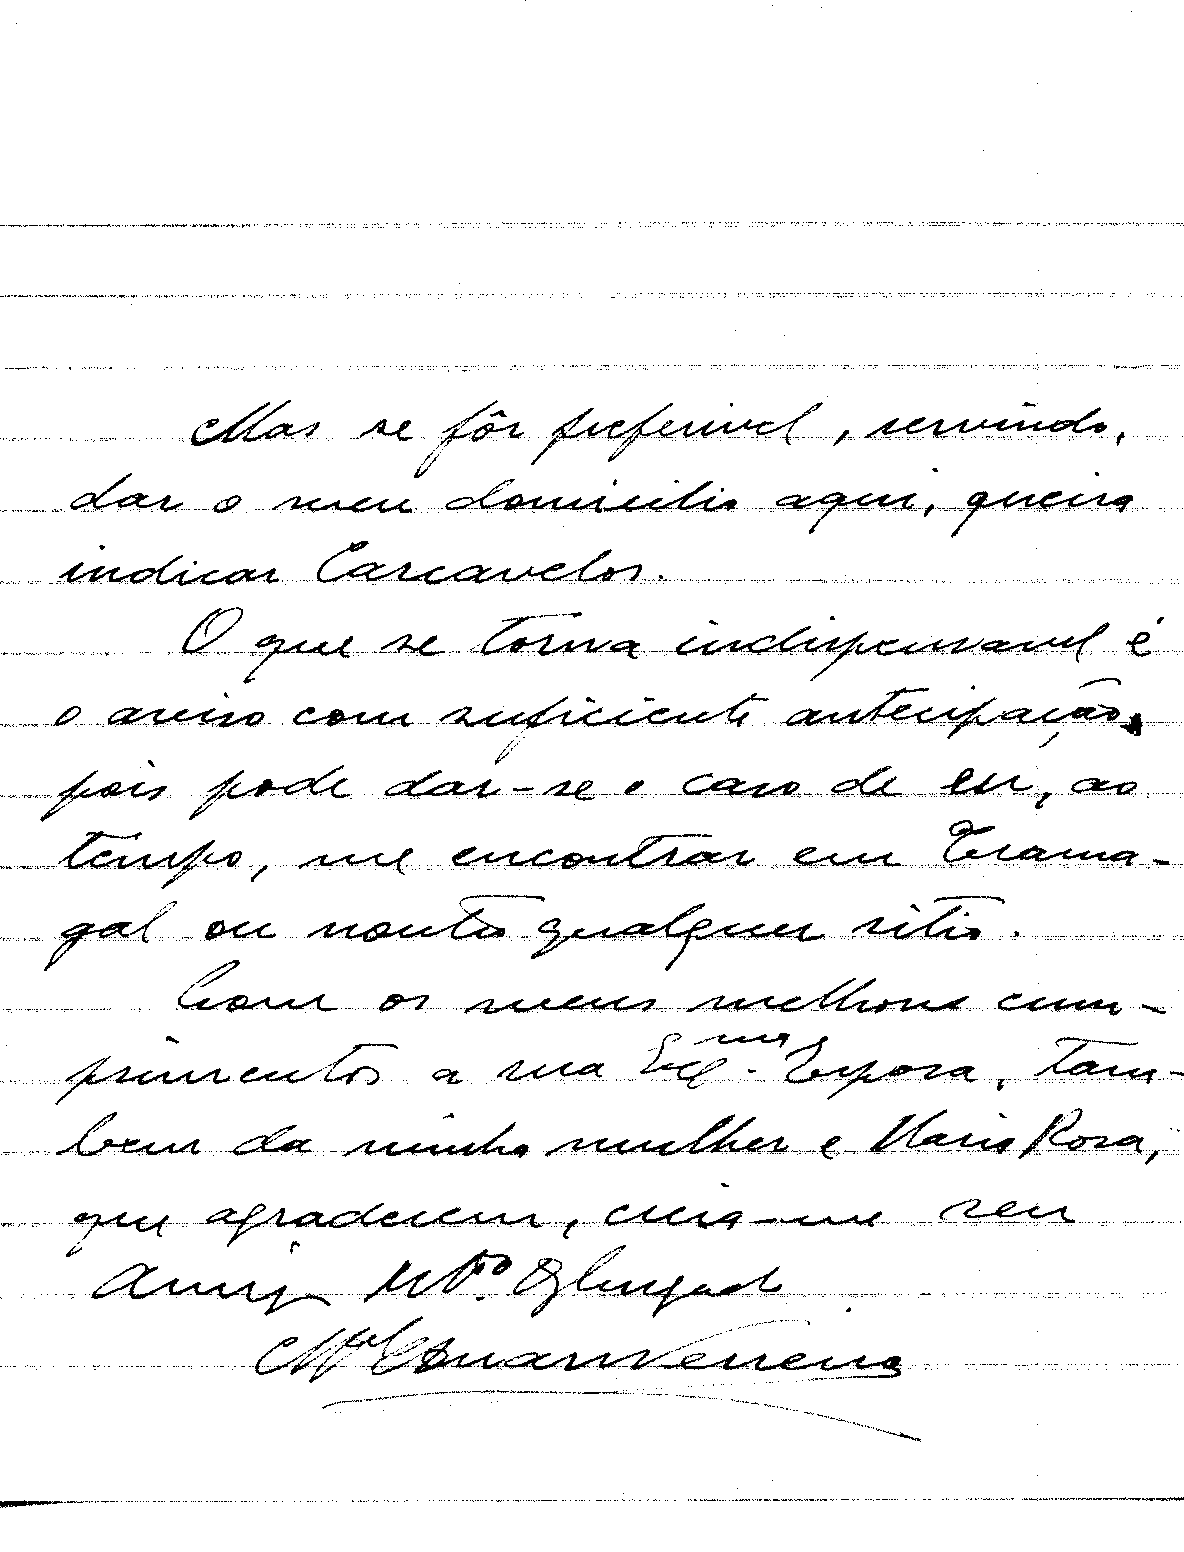 Mas se fôr preferivel, servindo,
dar o meu domicilio aqui, queira
indicar Carcavelos.
O que se torna indispensavel é
o aviso com suficiente antecipação,
pois pode dar-se o caso de eu, ao
tempo, me encontrar em Trama-
gal ou noutro qualquer sitio.
Com os meus melhores cum-
primentos a sua Exma. Esposa, tam-
bem da minha mulher e Maria Rosa,
que agradecem, creia-me seu
Amigo Mto. Obrigado
Mel